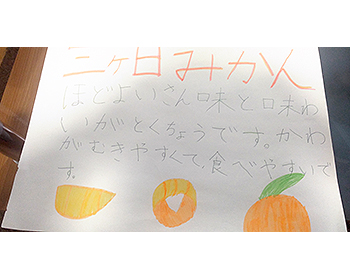 三ヶ日みかん
ほどよいさん味と口味わ
いがとくちょうです。かわ
がむきやすくて、食べやすいで
す。